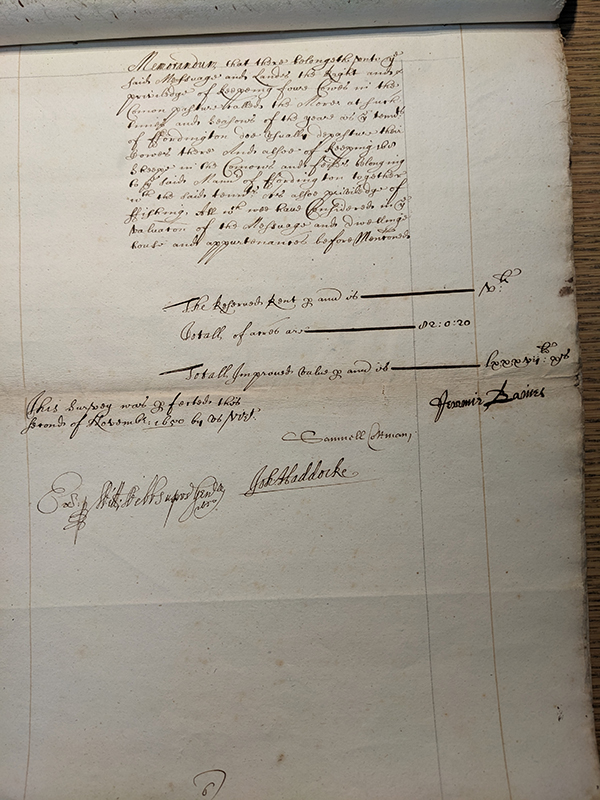 Memorandum that there belongeth unto ye
said Messuage and Lands the Right and
priviledge of Keepeing fowre Cowes in the
Comon pasture Called the Moore at such
times and seasons of the yeare as ye tenants
of fordington doe usually depasture their
Cowes there And alsoe of Keeping 168
sheepe in the Comons and feilds belonging
to ye said Mannor of ffordington together
wth the said tennts As alsoe priviledge of
ffishing. All wch wee have Considered in ye
valuation of the Messuage and dwelling
house and appurtenances before Mentioned
The Reserved Rent p ann is
Totall of acres are 82:0:20
Totall Improved value p ann is lxxxvij li
This Survey was pfected this
second of November 1650 by us vizt.
Jeremie Baines
Samuell Cottman
Ex: Will: Webb
Joh Haddocke
6